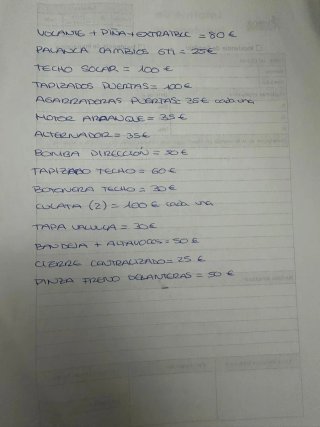 VOLANTE + PIÑA + EXTRAIBLE = 80 €
PALANCA CAMBIOS GTI = 25€
TECHO SOLAR = 100 €
TAPIZADOS PUERTAS = 100€
AGARRADORAS PUERTAS = 35€ cada una
MOTOR ARRANQUE = 35€
ALTERNADOR = 35€
BOMBA DIRECCIÓN = 50€
TAPIZADO TECHO = 60€
BOTONERA TECHO = 30€
CULATA (2) = 100€ cada una
TAPA VALVULA = 30€
BANDEJA + ALTAVOCES = 50€
CIERRE CENTRALIZADO = 25 €
PINZA FRENO DELANTERAS = 50 €